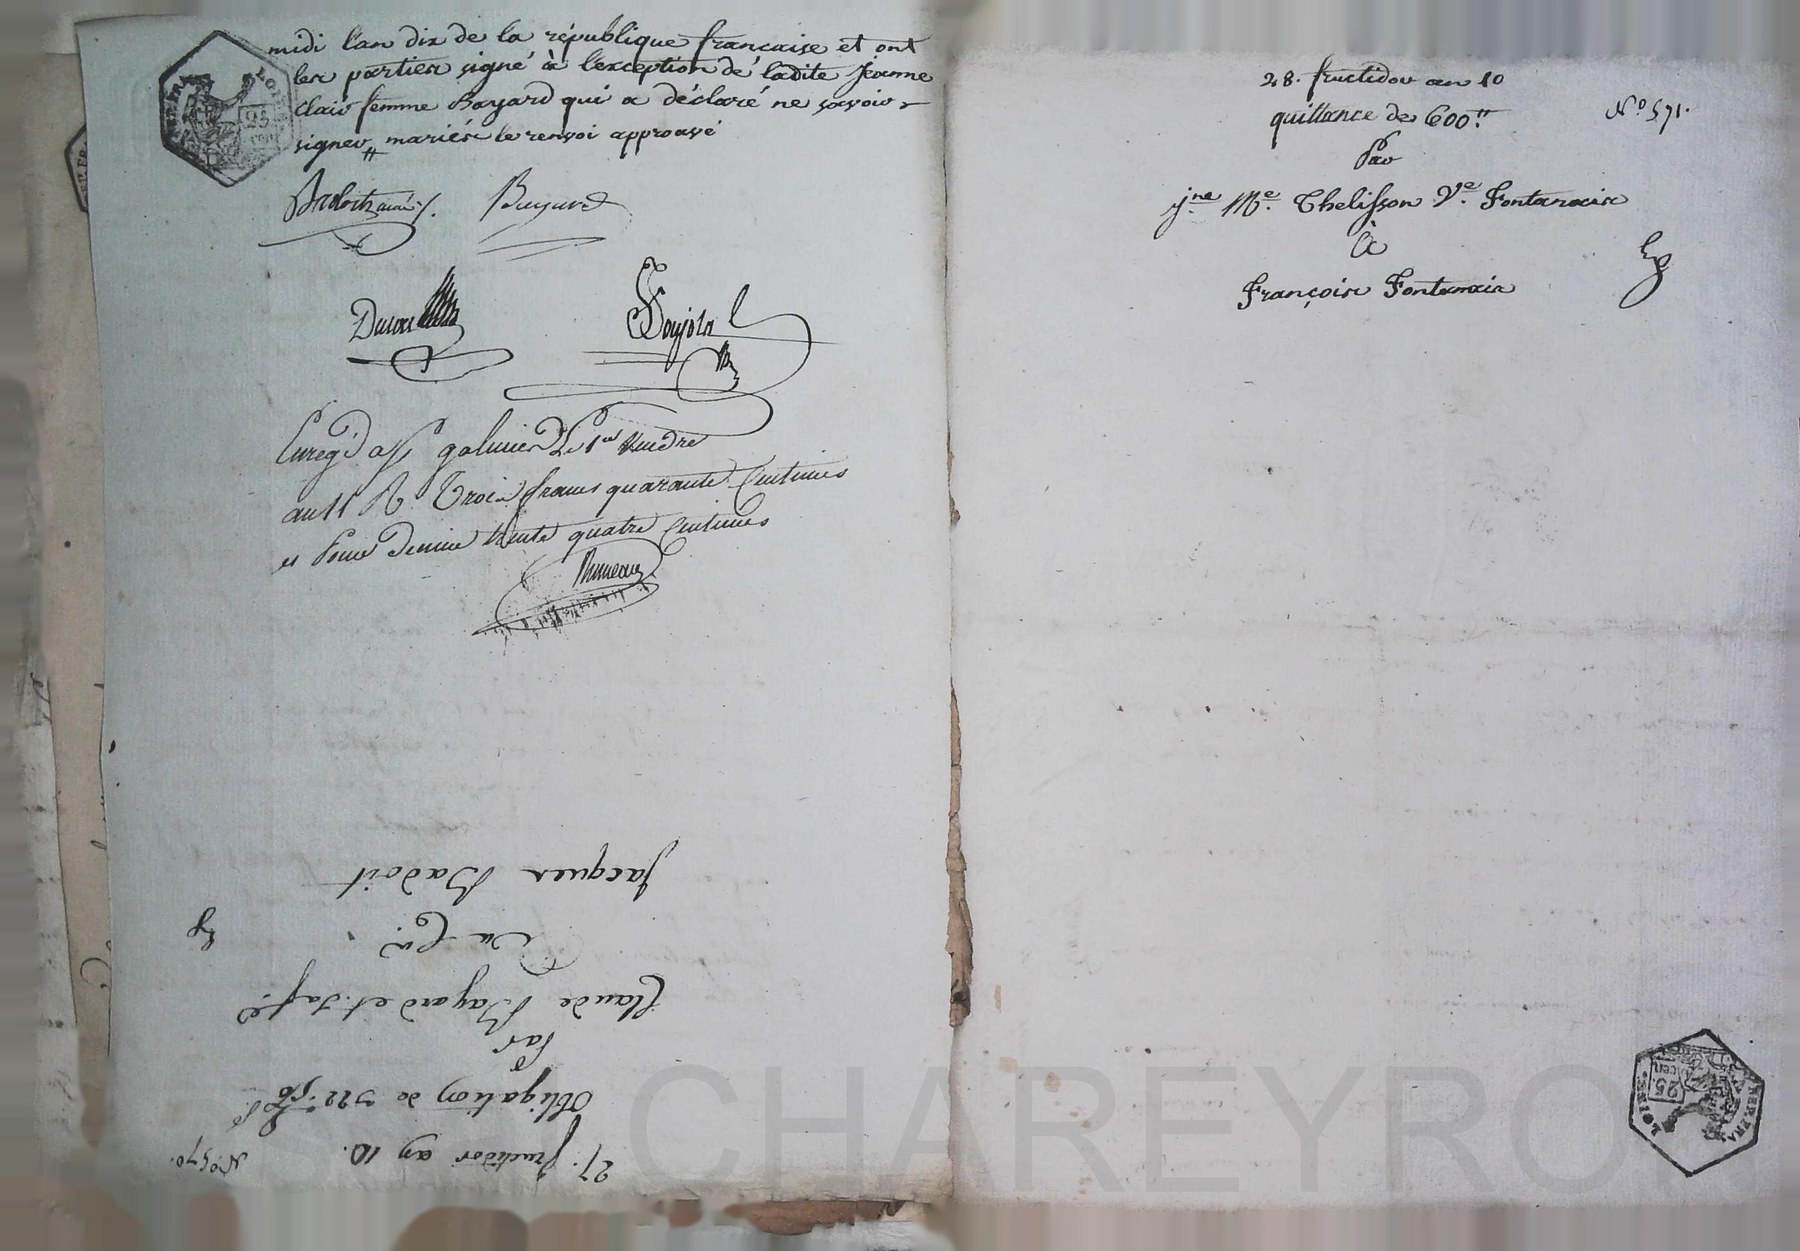 midi l'an dix de la république francaise et ont
les parties signé à l'exception de ladite jeanne
clair femme Bayard qui a déclaré ne savoir
signer mariés le renvoi approuvé
Bayard
Enreg. à galmier Le 1er vendre
an 11 R. Trois francs quarante Centimes
et Pour Decime trente quatre Centimes
jacques Badoit
Au Cn.
Claude Bayard et sa fe
Par
Obligation de 322 f. 50
27. fructidor an 10.
N° 570.
28. fructidor an 10
quittance de 600.
N° 571.
Par
jne Me. Thelisson Ve. Fontanais
à
François Fontanais
CHAREYRON